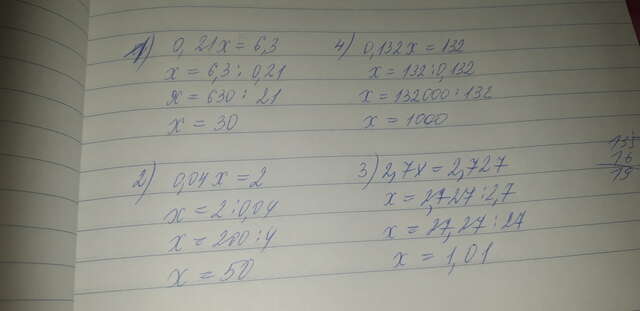 1) 0,21x = 6,3
x = 6,3 : 0,21
x = 630 : 21
x = 30
2) 0,04x = 2
x = 2 : 0,04
x = 200 : 4
x = 50
4) 0,132x = 132
x = 132 : 0,132
x = 132000 : 132
x = 1000
3) 2,7x = 2,727
x = 2,727 : 2,7
x = 27,27 : 27
x = 1,01